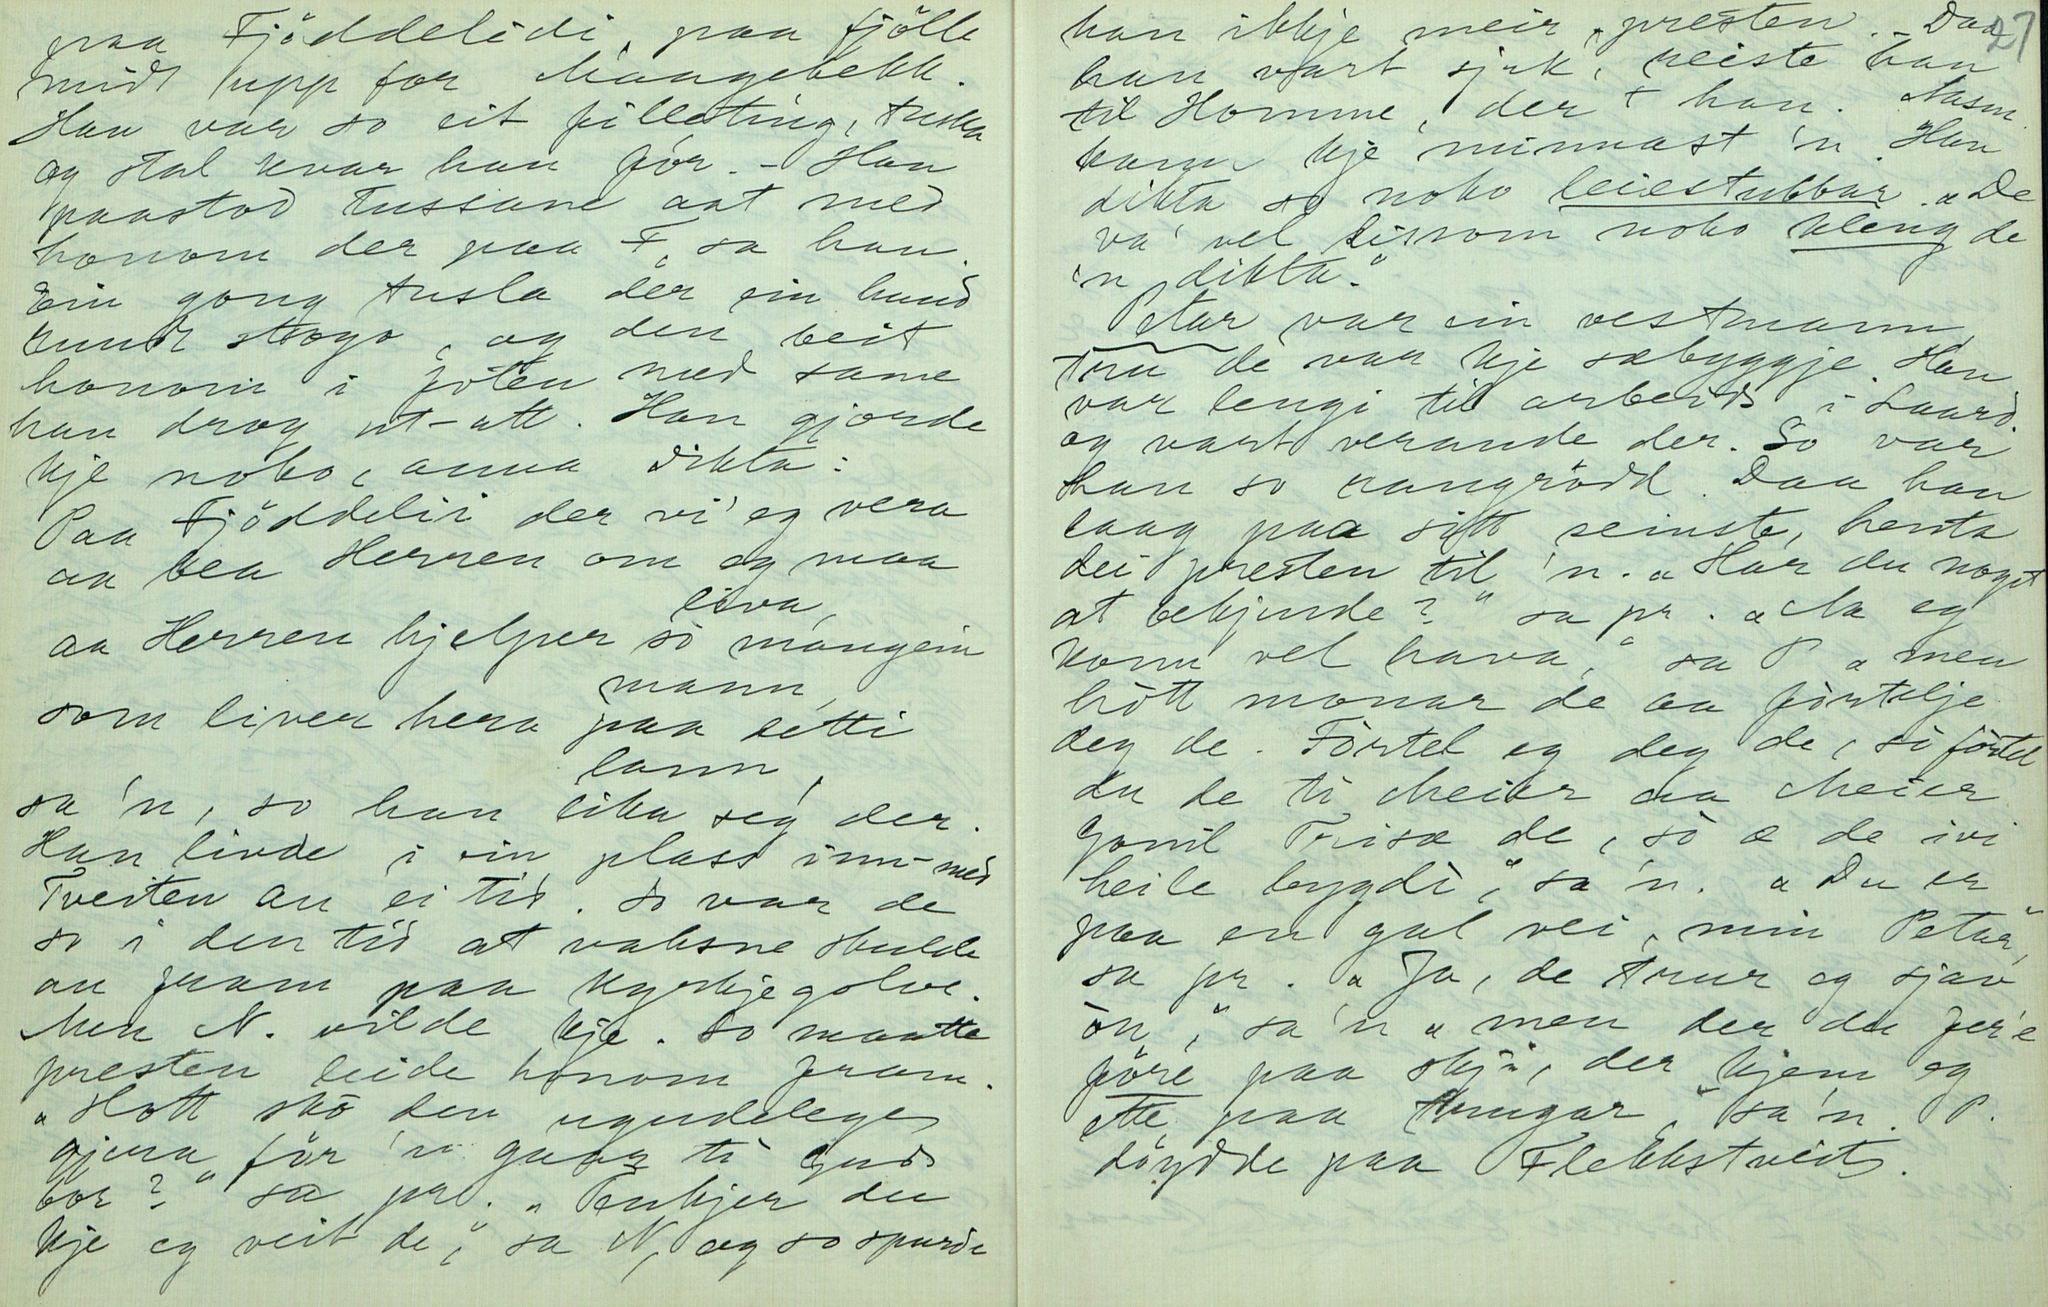 paa Fjöddelidi, paa fjölle
midt upp for Maagebekk.
Han var so eit filleting, tuska
og stal kvar han fór. - Han
paastod tussane aat med
honom der paa F, sa han.
Ein gong tusla der ein hund
kund stogo, og den beit
honom i foten med same
han drog ut-att. Han gjorde
kje noko, anna dikta:
Paa Fjöddelii der vi' eg vera
aa bea Herren om eg maa
liva,
aa Herren hjelper so mangein
mann,
som liver hera paa detti
lann,
sa 'n, so han lika seg der.
Han livde i ein plass inn-med
Tveiten au ei tid. So var de
so i den tid at vaksne skulde
au fram paa kyrkjegolve.
Men N. vilde kje. So maatte
presten leide honom fram.
„Hott sko den ugudelege
gjera för 'n gaar ti Guds
bor?" sa pr. „Tenkjer du
kje eg veit de," sa N, og so spurde
27
han ikkje meir, presten. Daa
han vart sjuk, reiste han
til Homme, der + han. Aasm.
kann kje minnast 'n. Han
dikta so noko leiestubbar. „De
va' vel lissom noko kleng de
'n dikta."
Petar var ein vestmann,
tru de var kje sæbyggje. Han
var lengi til arbeids i Laard.
og vart verande der. So var
han so rangrödd. Daa han
laag paa sitt seinste, henta
dei presten til 'n. „Har du noget
at bekjende?" sa pr. „Aa eg
konn vel hava," sa P „men
hott monar de aa fortelje
deg de. Förtel eg deg de, so förtel
du de ti Meier aa Meier
Gamli Trisæ de, so æ de ivi
heile bygdi," sa 'n. „Du er
paa en gal vei, min Petar,"
sa pr. „Ja, de trur eg sjav
ön," sa 'n „men der du fer'e
före paa skji, der kjem eg
ette paa trugar," sa 'n. P.
döydde paa Flekkstveit.